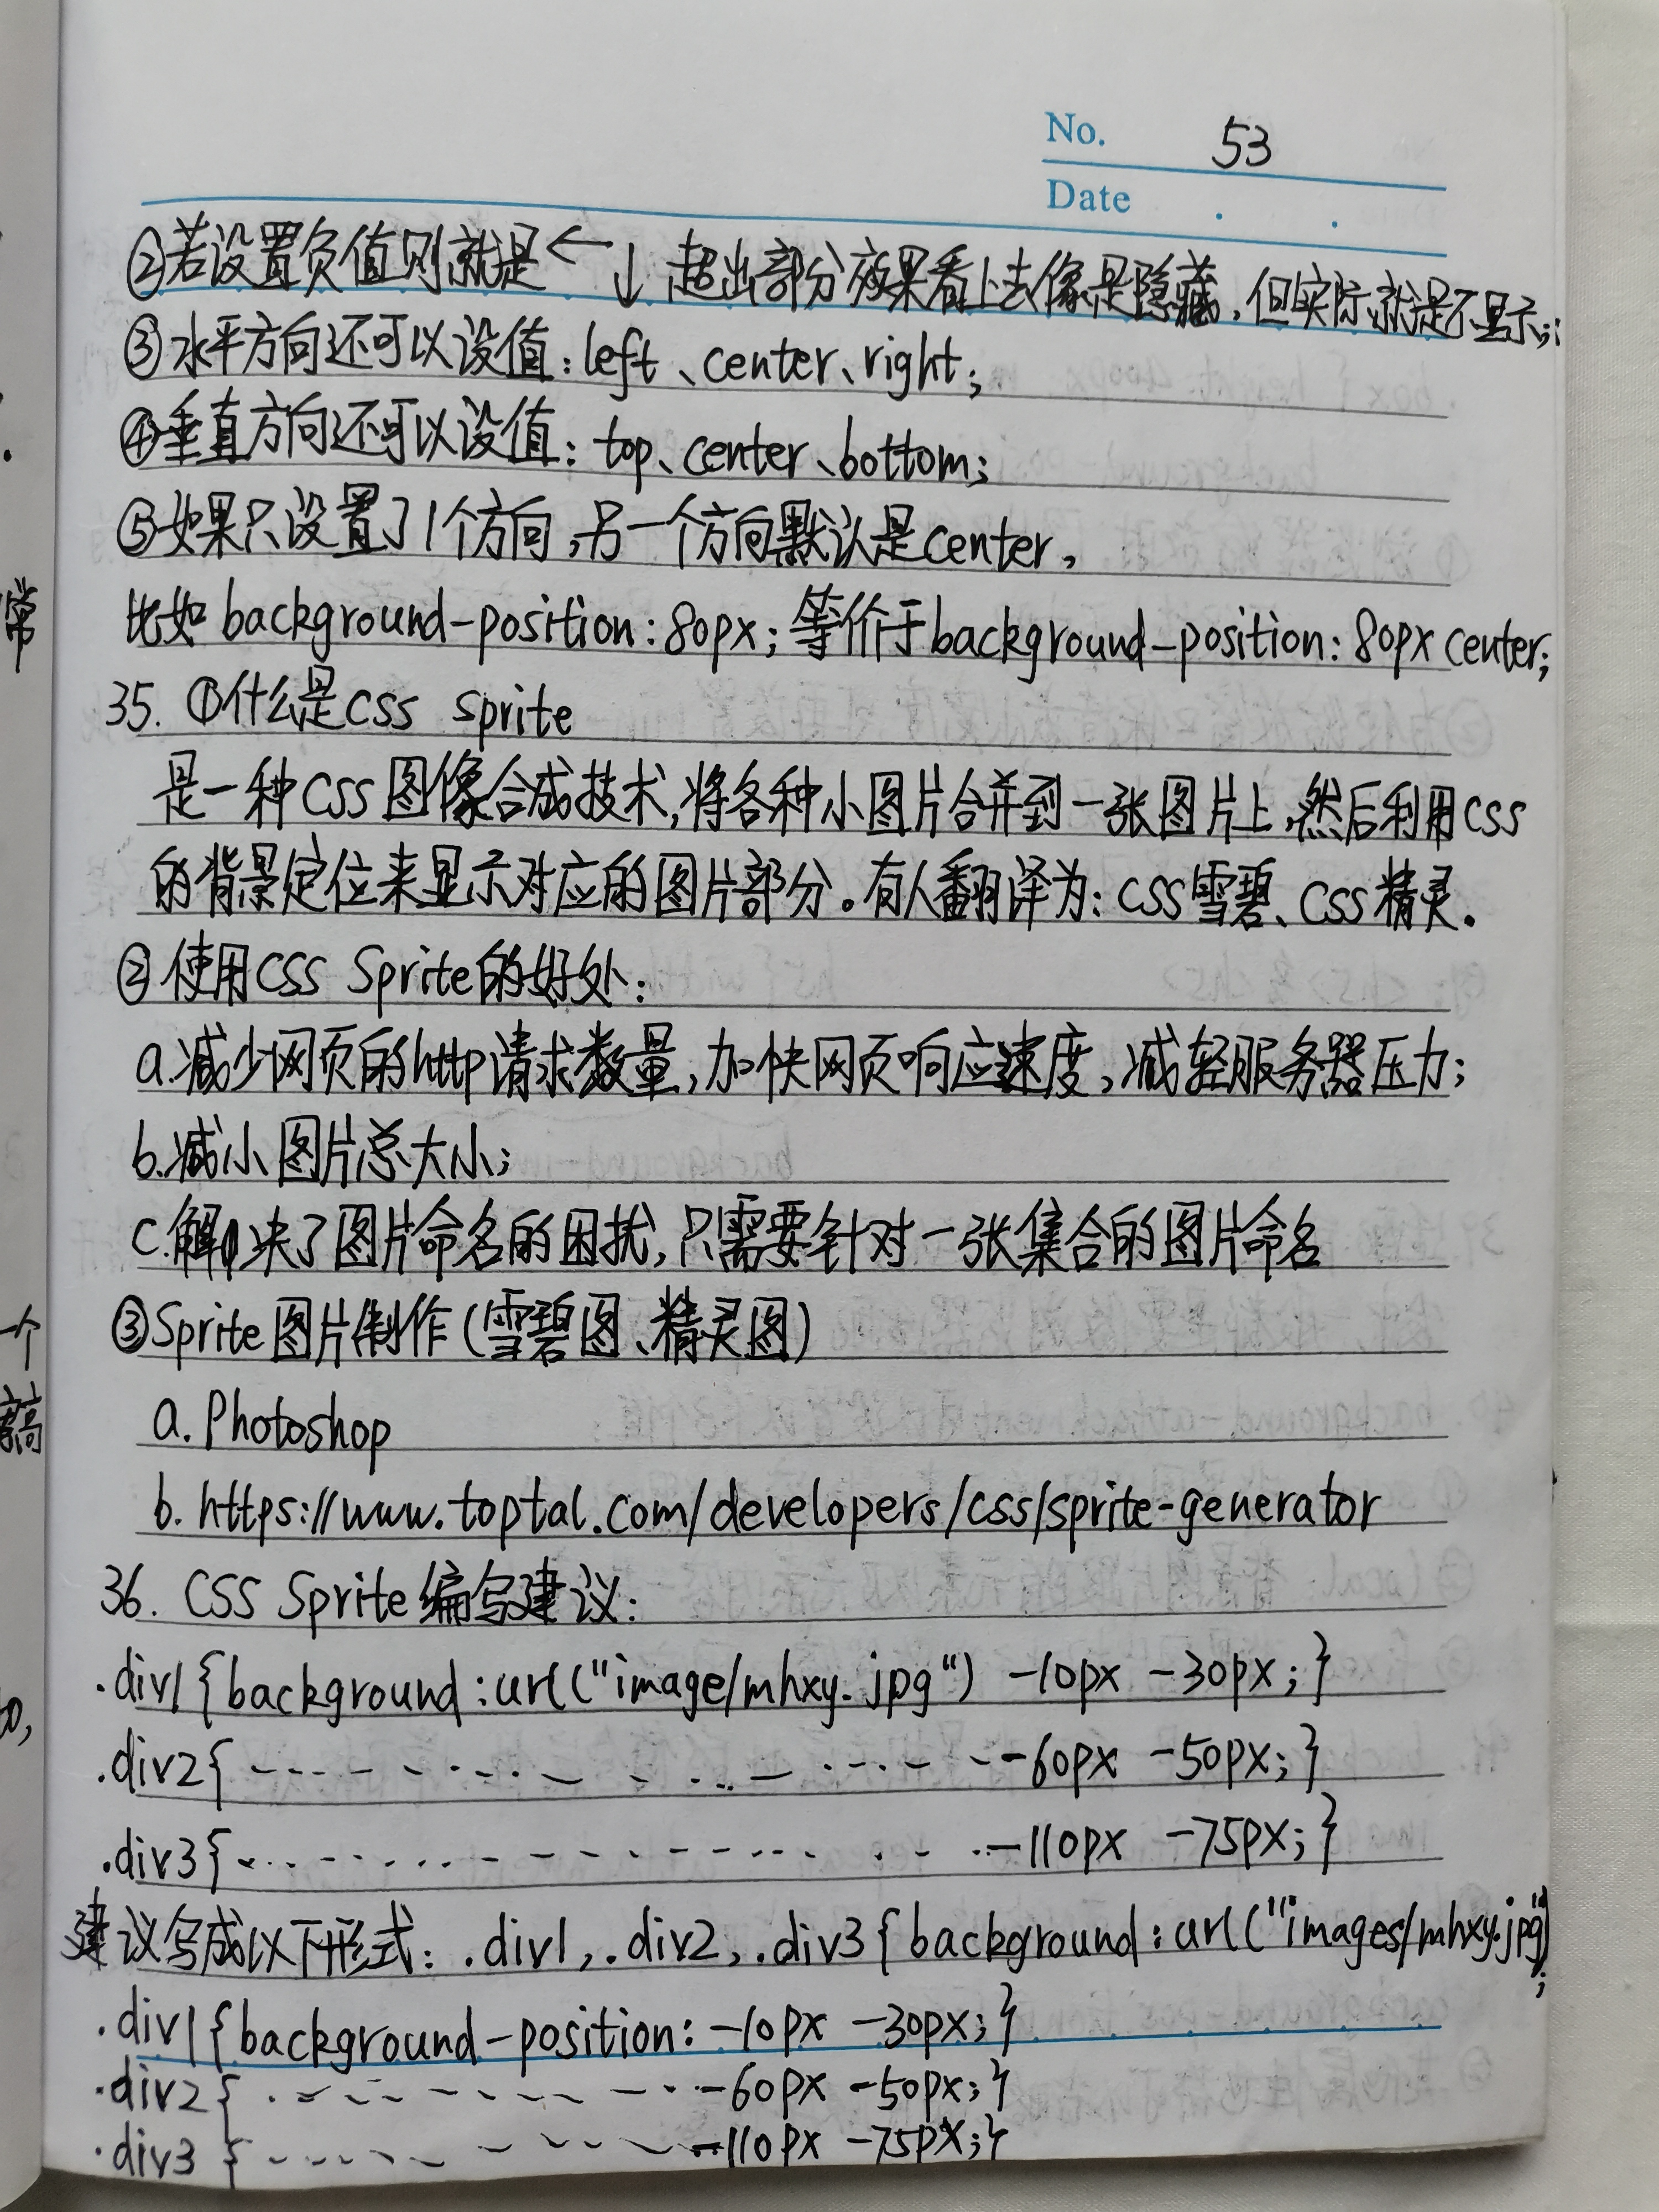 No. 53
Date
②若设置负值则就是← ↓ 超出部分效果看上去像是隐藏，但实际就是不显示;;
③水平方向还可以设值：left、center、right;
④垂直方向还可以设值：top、center、bottom;
⑤如果只设置了1个方向，另一个方向默认是center，
比如background-position:80px;等价于background-position:80px center;
35. ①什么是css sprite
是一种CSS图像合成技术，将各种小图片合并到一张图片上，然后利用CSS
的背景定位来显示对应的图片部分。有人翻译为：CSS雪碧、CSS精灵.
②使用CSS Sprite的好处：
a.减少网页的http请求数量，加快网页响应速度，减轻服务器压力;
b.减小图片总大小;
c.解决了图片命名的困扰，只需要针对一张集合的图片命名
③Sprite图片制作(雪碧图、精灵图)
a. Photoshop
b. https://www.toptal.com/developers/css/sprite-generator
36. CSS Sprite编写建议：
.div1{background:url("image/mhxy.jpg") -10px -30px;}
.div2{ -60px -50px;}
.div3{ -110px -75px;}
建议写成以下形式：.div1,.div2,.div3{background:url("images/mhxy.jpg");
.div1{background-position:-10px -30px;}
.div2{ -60px -50px;}
.div3{ -110px -75px;}
常
一个
高